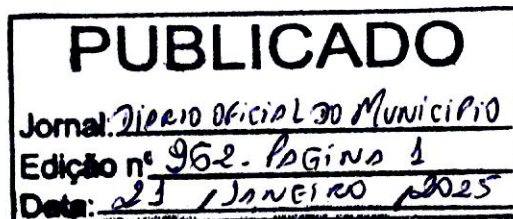 PUBLICADO
Jornal: DIÁRIO OFICIAL DO MUNICIPIO
Edição nº 962. PAGINA 1
Data: 21 / JANEIRO / 2025